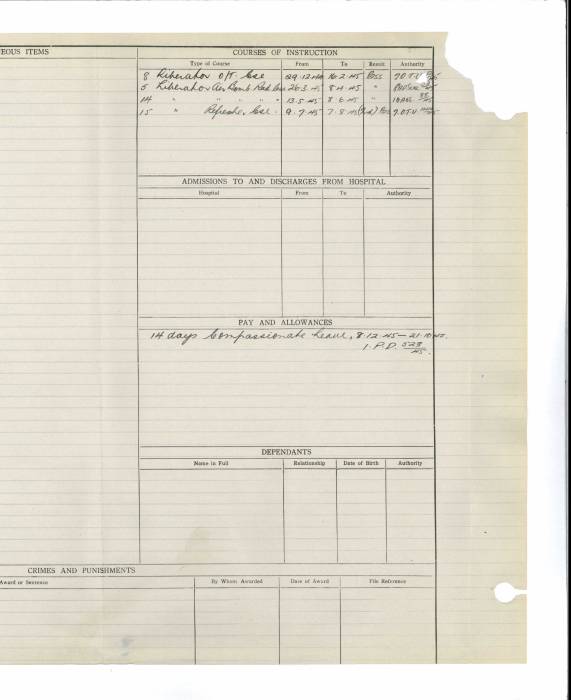 EOUS ITEMS
COURSES OF INSTRUCTION
Type of Course From To Result Authority
8 Liberator O/T. Cse 29.12.44 16.2.45 Pass 7 O.T.U.
5 Liberator Air Bomb 26.3.45 8.4.45 "
14 " " " " " 13.5.45 8.6.45 "
15 " Refresher Cse. 9.7.45 7.8.45 7.O.T.U
ADMISSIONS TO AND DISCHARGES FROM HOSPITAL
Hospital From To Authority
PAY AND ALLOWANCES
14 days Compassionate Leave, 8 12 45 — 21
1. P.D. 528/45.
DEPENDANTS
Name in Full Relationship Date of Birth Authority
CRIMES AND PUNISHMENTS
Award or Sentence By Whom Awarded Date of Award File Reference